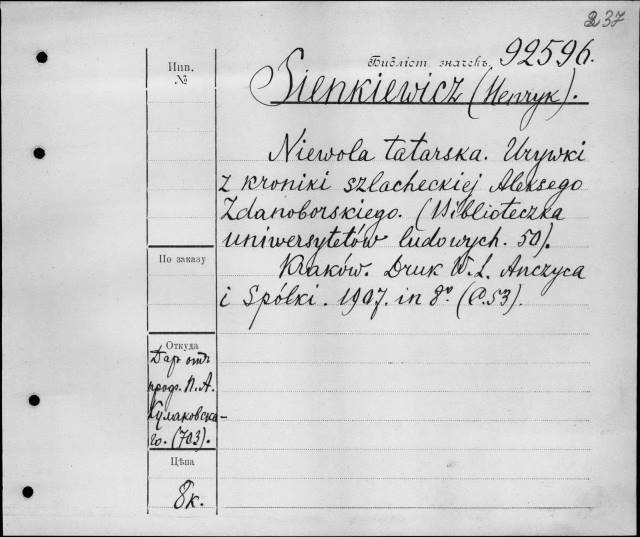 237
Библіот. значекъ. 92596.
Инв.
№
Sienkiewicz (Henryk).
Niewola tatarska. Urywki
z kroniki szlacheckiej Aleksego
Zdanoborskiego. (Biblioteczka
uniwersytetów ludowych. 50).
Kraków. Druk W. L. Anczyca
i Spółki. 1907. in 8º (C. 53).
По заказу
Откуда
Даръ отъ
проф. П. А.
Кулаковска-
го. (703).
Цѣна
8к.